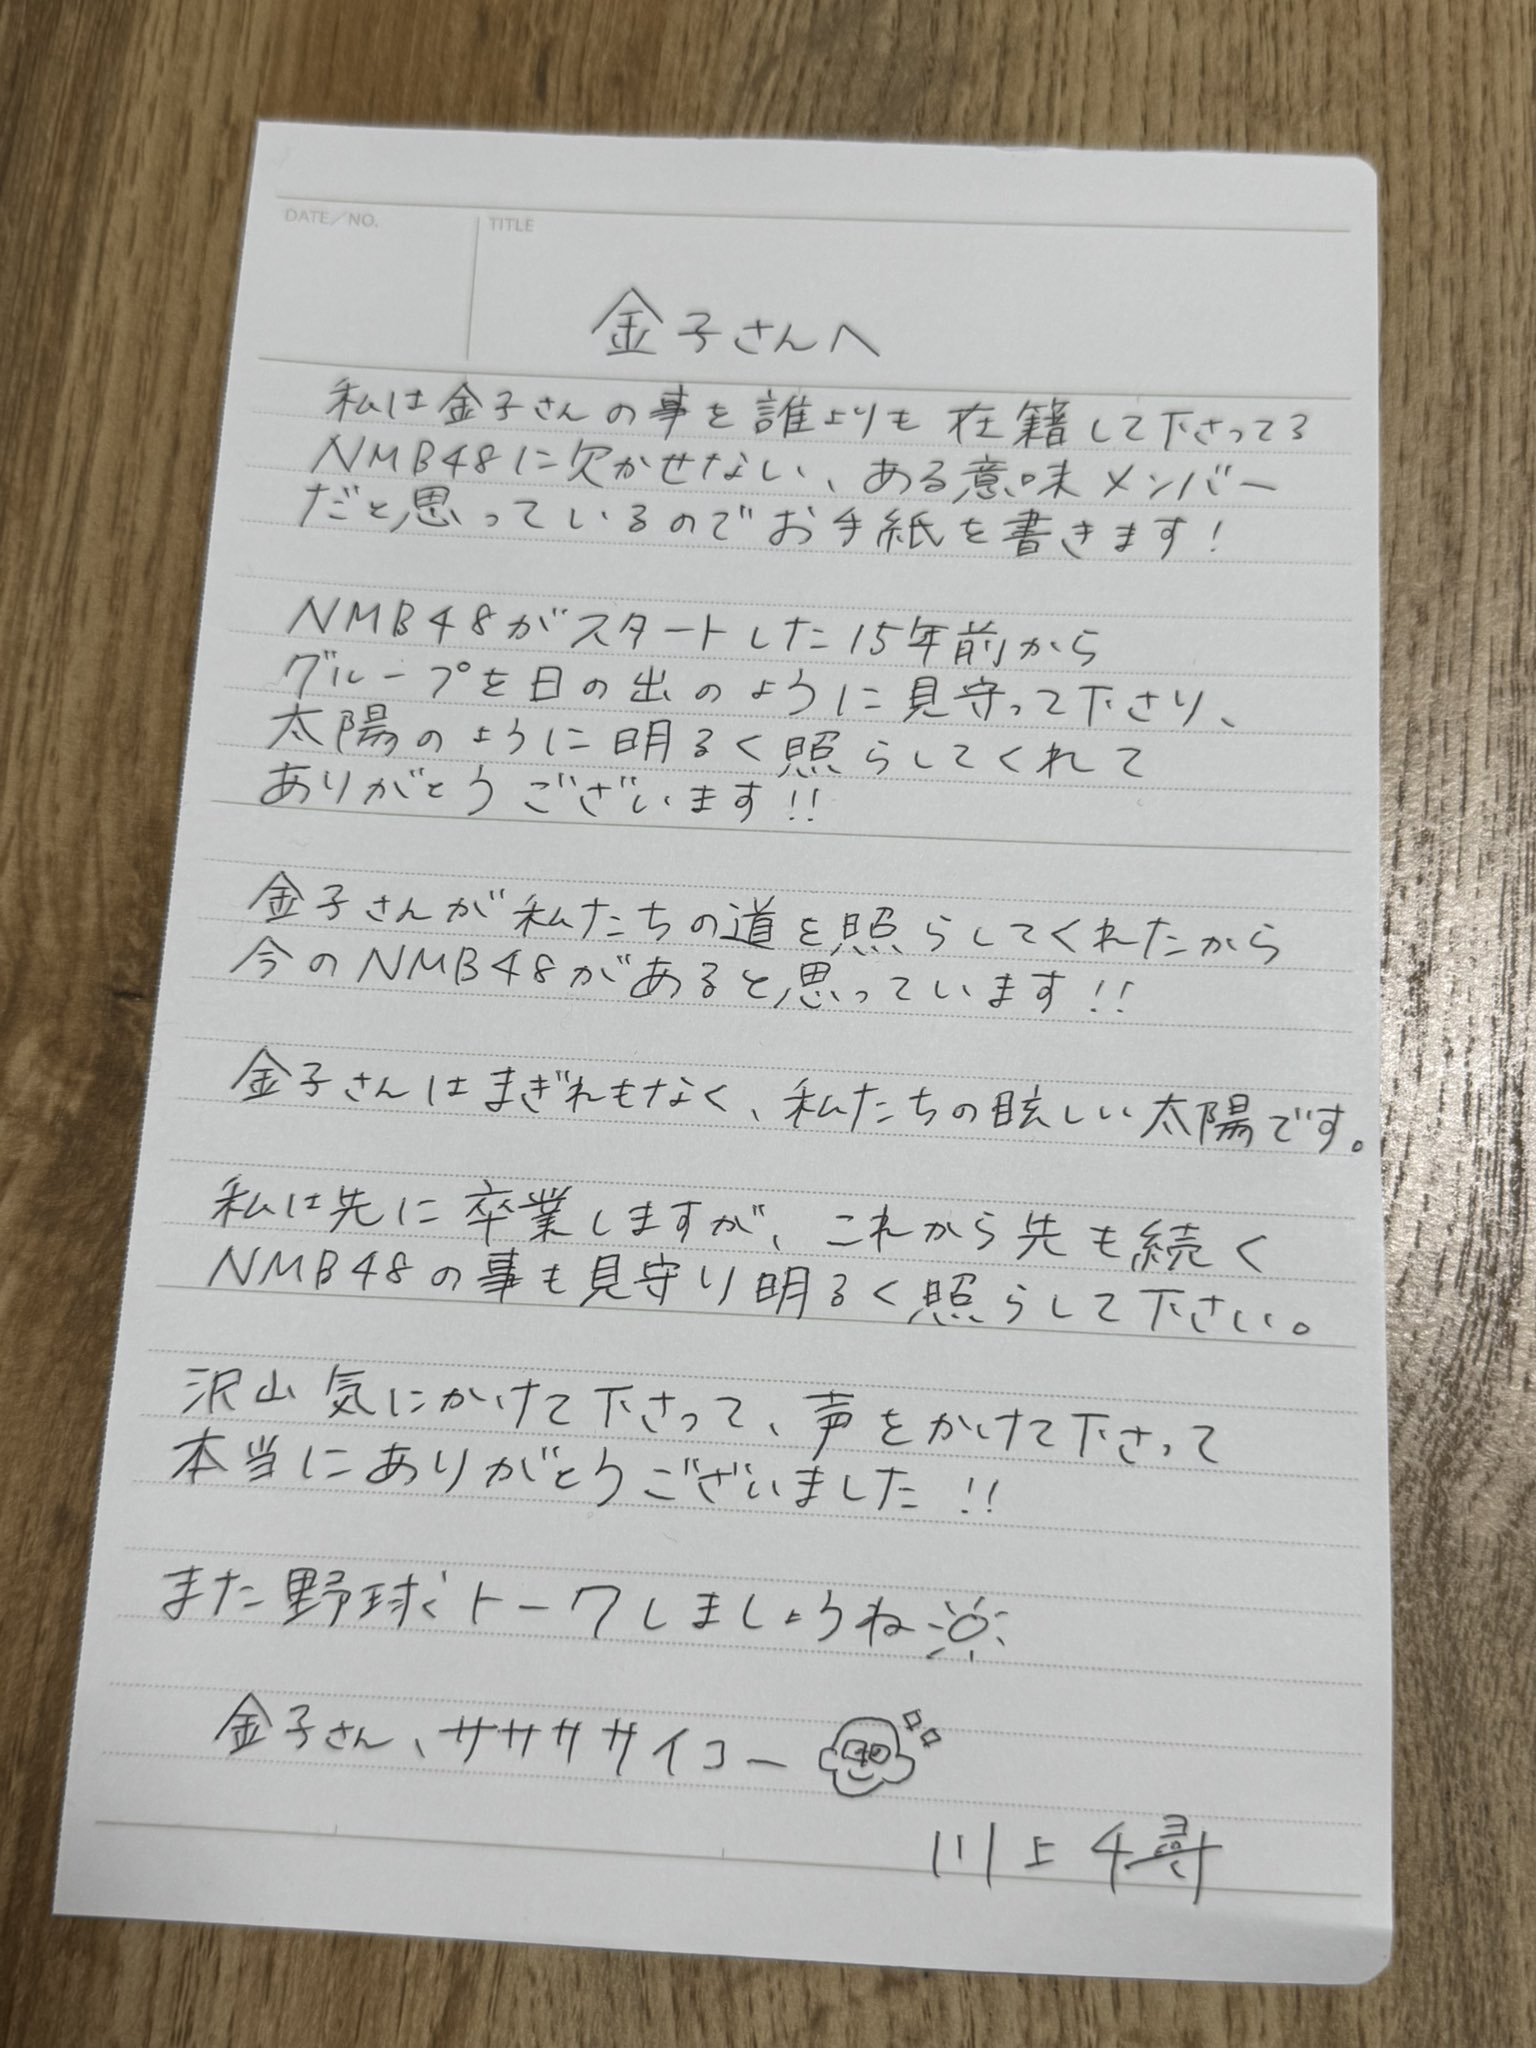 DATE/NO.
TITLE
金子さんへ
私は金子さんの事を誰よりも在籍して下さってる
NMB48に欠かせない、ある意味メンバー
だと思っているのでお手紙を書きます!
NMB48がスタートした15年前から
グループを日の出のように見守って下さり、
太陽のように明るく照らしてくれて
ありがとうございます!!
金子さんが私たちの道を照らしてくれたから
今のNMB48があると思っています!!
金子さんはまぎれもなく、私たちの眩しい太陽です。
私は先に卒業しますが、これから先も続く
NMB48の事も見守り明るく照らして下さい。
沢山気にかけて下さって、声をかけて下さって
本当にありがとうございました!!
また野球トークしましょうね
金子さん、サササササイコー
川上千尋